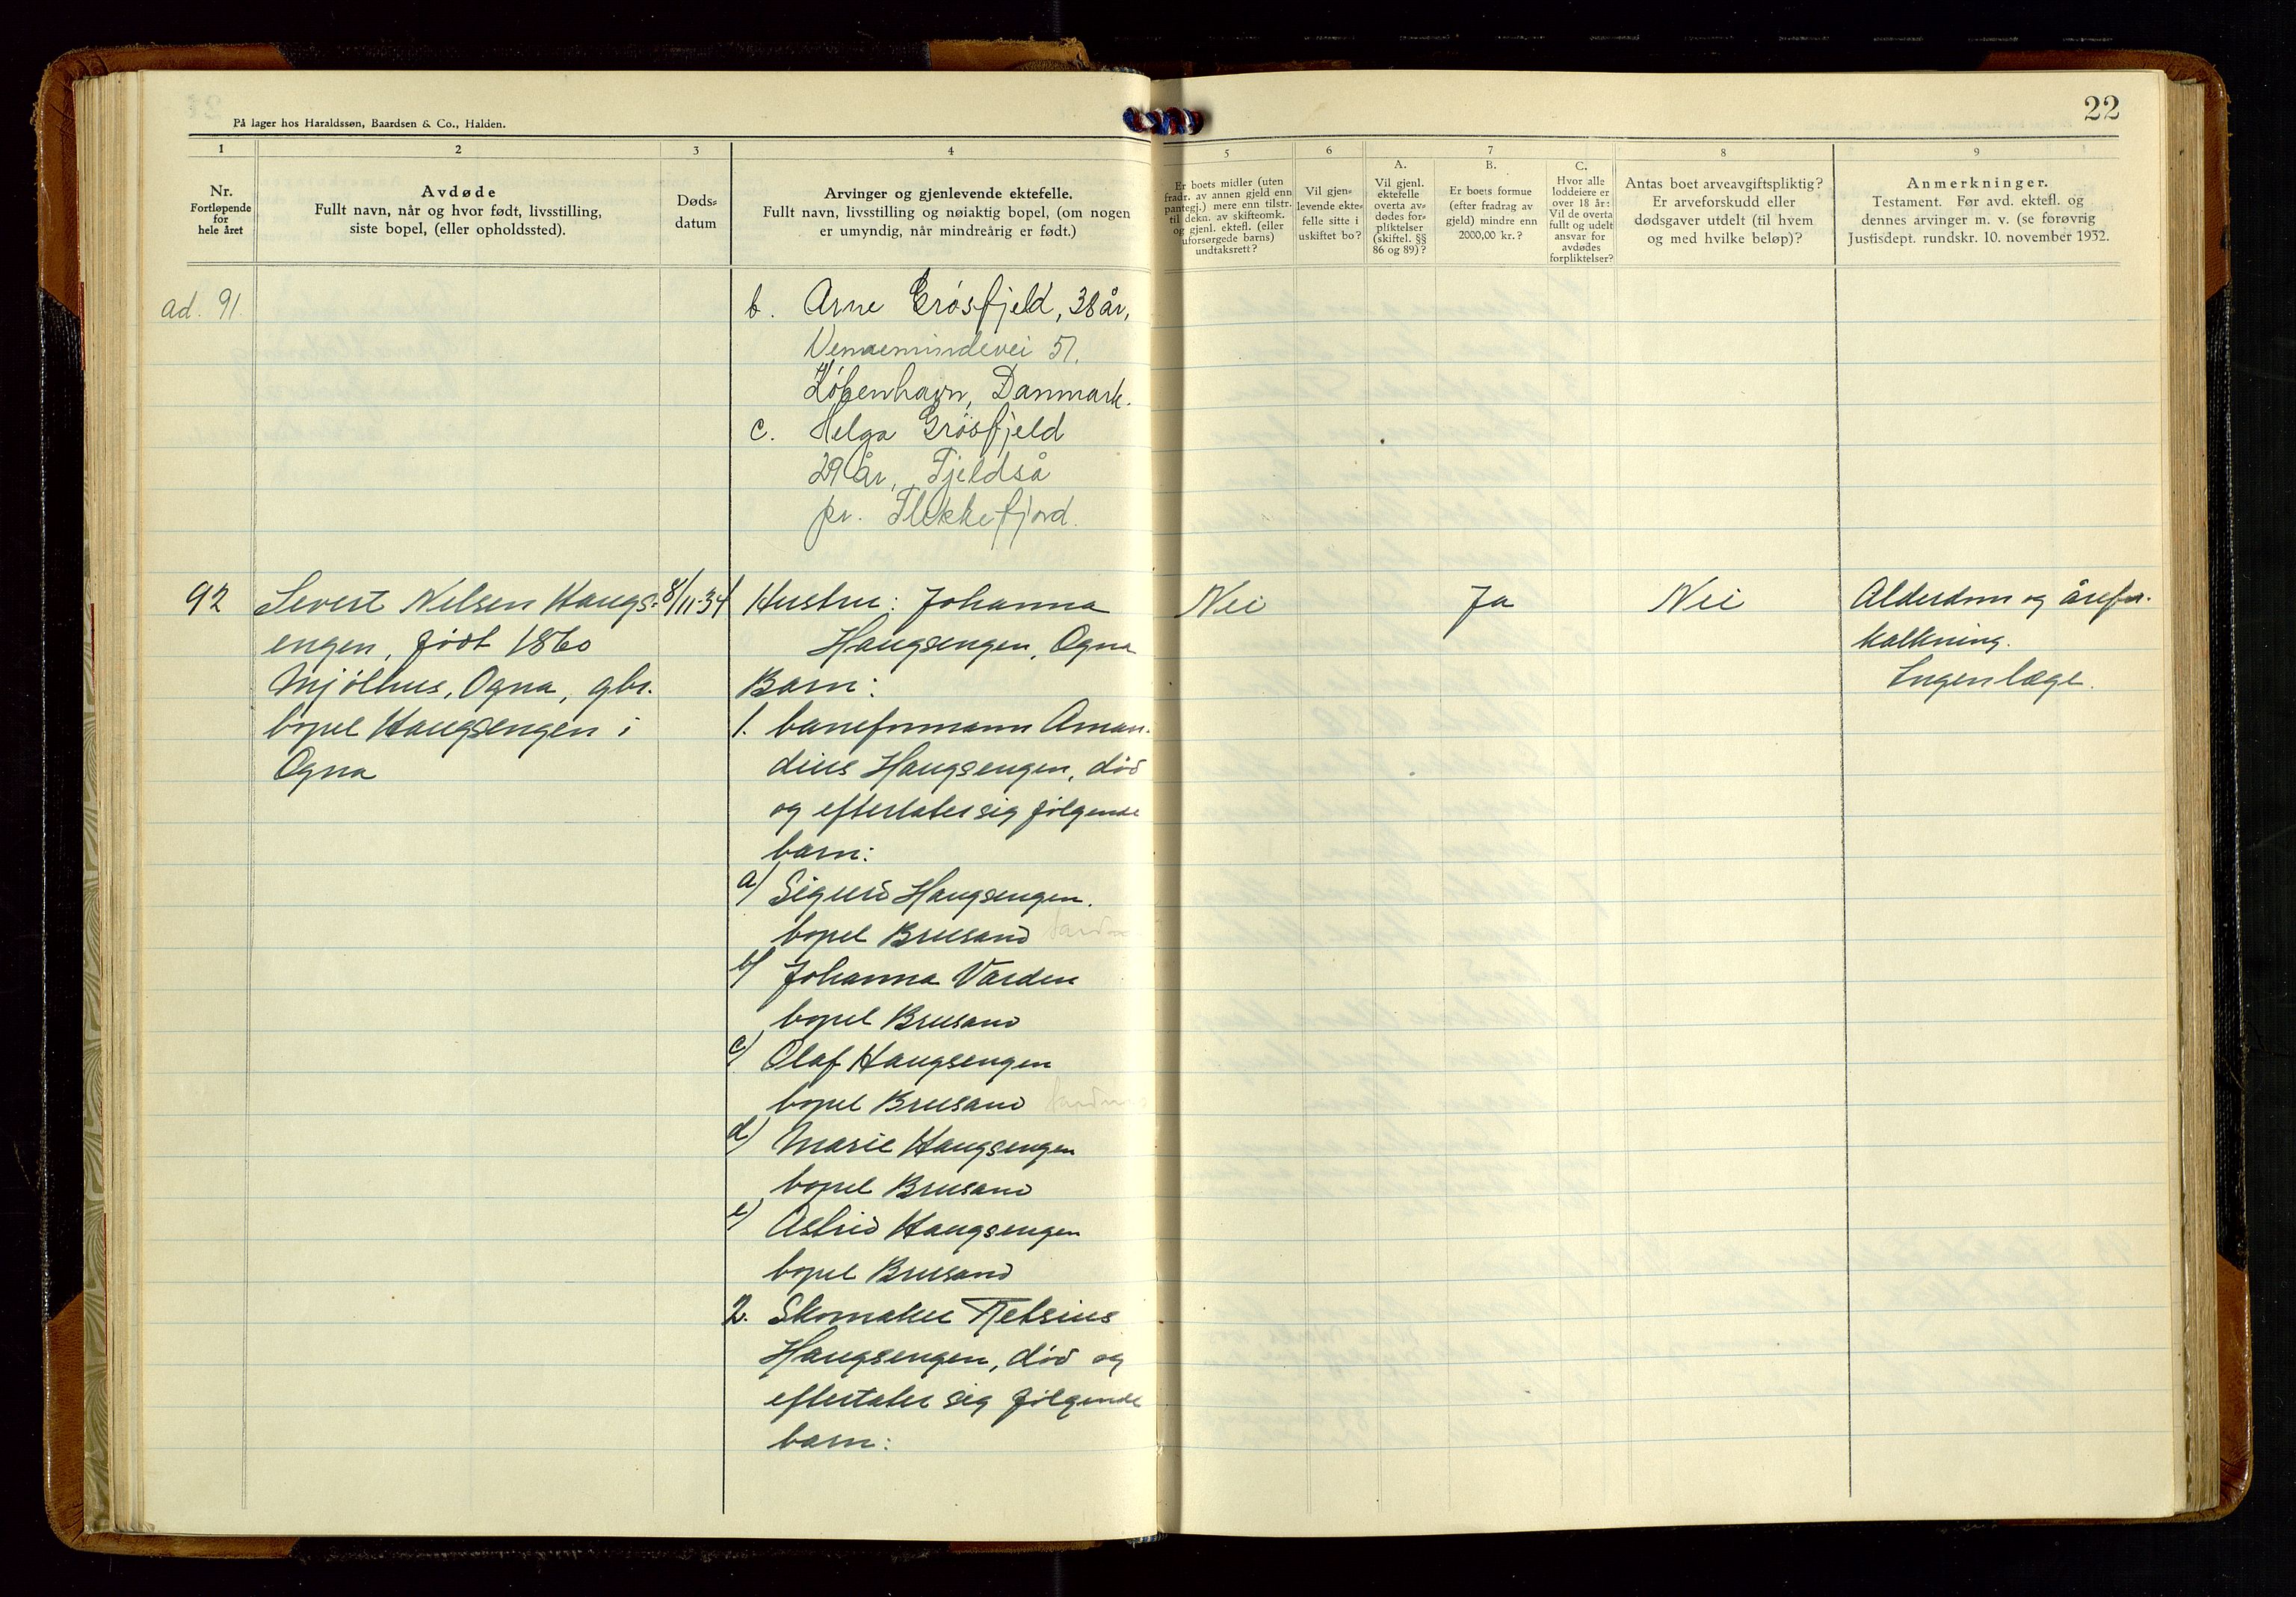 På lager hos Haraldssøn, Baardsen & Co., Halden.
22
1
2
3
4
5
6
7
8
9
Nr.
Fortløpende
for
hele året
Avdøde
Fullt navn, når og hvor født, livsstilling,
siste bopel, (eller opholdssted).
Døds-
datum
Arvinger og gjenlevende ektefelle.
Fullt navn, livsstilling og nøiaktig bopel, (om nogen
er umyndig, når mindreårig er født.)
Er boets midler (uten
fradr. av annen gjeld enn
pantegj.) mere enn tilstr.
til dekn. av skifteomk.
og gjenl. ektefl. (eller
uforsørgede barns)
undtaksrett?
Vil gjen-
levende ekte-
felle sitte i
uskiftet bo?
A.
Vil gjenl.
ektefelle
overta av-
dødes for-
pliktelser
(skiftel. §§
86 og 89)?
B.
Er boets formue
(efter fradrag av
gjeld) mindre enn
2000,00 kr.?
C.
Hvor alle
loddeiere er
over 18 år:
Vil de overta
fullt og udelt
ansvar for
avdødes
forpliktelser?
Antas boet arveavgiftspliktig?
Er arveforskudd eller
dødsgaver utdelt (til hvem
og med hvilke beløp)?
Anmerkninger.
Testament. Før avd. ektefl. og
dennes arvinger m. v. (se forøvrig
Justisdept. rundskr. 10. november 1932.
ad. 91.
b. Arne Grøsfjeld, 38 år,
Vennemindevei 51,
København, Danmark.
c. Helga Grøsfjeld
29 år, Fjeldså
pr. Flekkefjord.
92
Severt Nelsen Haugs-
engen, født 1860
Mjølhus, Ogna, gbr.
bopel Haugsengen i
Ogna
8/11-34
Hustru: Johanna
Haugsengen, Ogna
Barn:
1. baneformann Aman-
dius Haugsengen, død
og efterlater sig følgende
barn:
a) Sigurd Haugsengen.
bopel Brusand
b) Johanna Varden
bopel Brusand
c) Olaf Haugsengen
bopel Brusand
d) Marie Haugsengen
bopel Brusand
e) Astrid Haugsengen
bopel Brusand
2. Skomaker Nelsius
Haugsengen, død og
efterlater sig følgende
barn:
Nei
Ja
Nei
Alderdom og årefor-
kalkning.
Ingen læge.